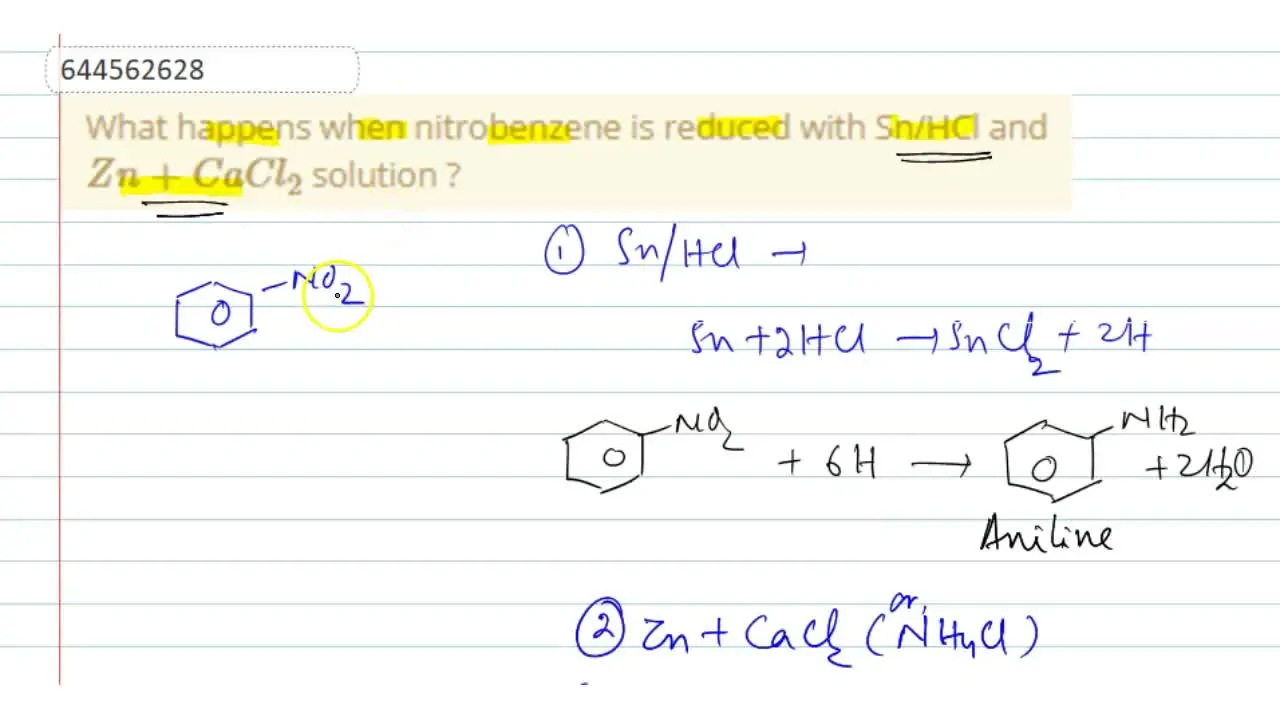 644562628
What happens when nitrobenzene is reduced with Sn/HCl and
Zn + CaCl₂ solution ?
① Sn/HCl →
NO₂
Sn + 2HCl → SnCl₂ + 2H
NO₂ + 6H → NH₂ + 2H₂O
Aniline
② Zn + CaCl₂ (or NH₄Cl)